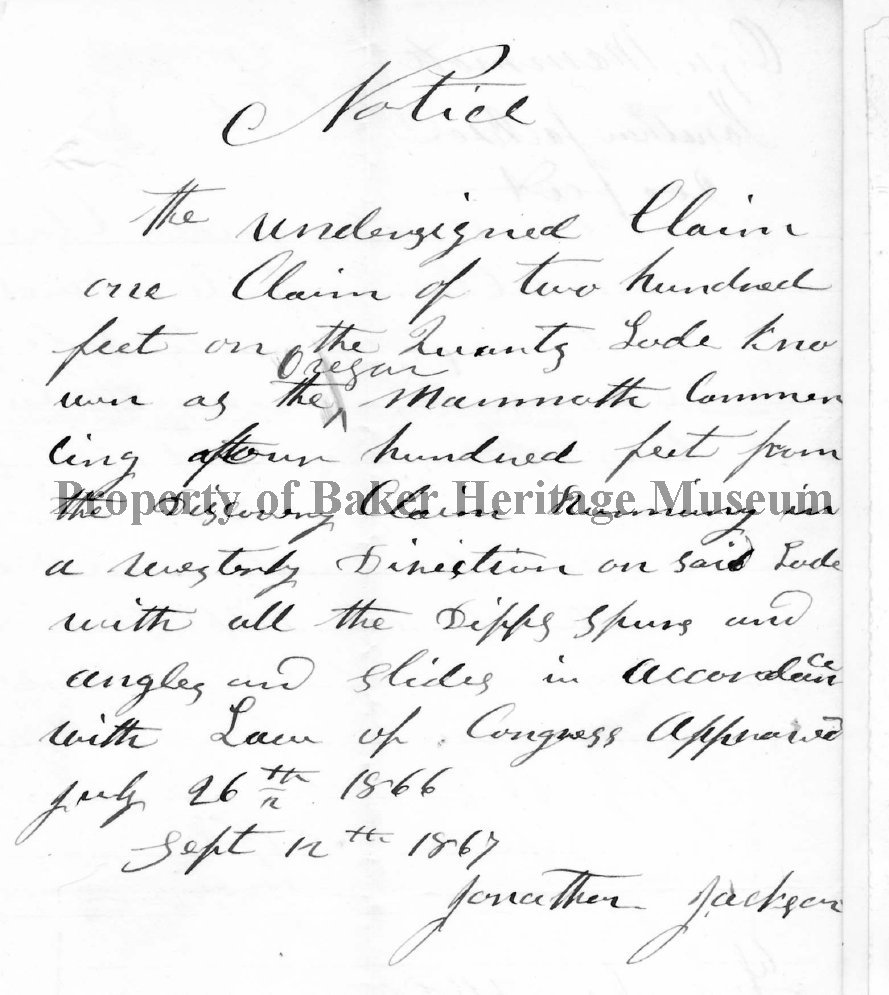 Notice
the undersigned Claim
one Claim of two hundred
feet on the Quartz Lode kno
wn as the Oregon Mammoth Commen
cing four hundred feet from
Property of Baker Heritage Museum
the Discovery Claim Running in
a westerly Direction on said Lode
with all the Dipps spurs and
angles and slides in accordance
with Law of Congress Approved
July 26th 1866
Sept 12th 1867
Jonathan Jackson